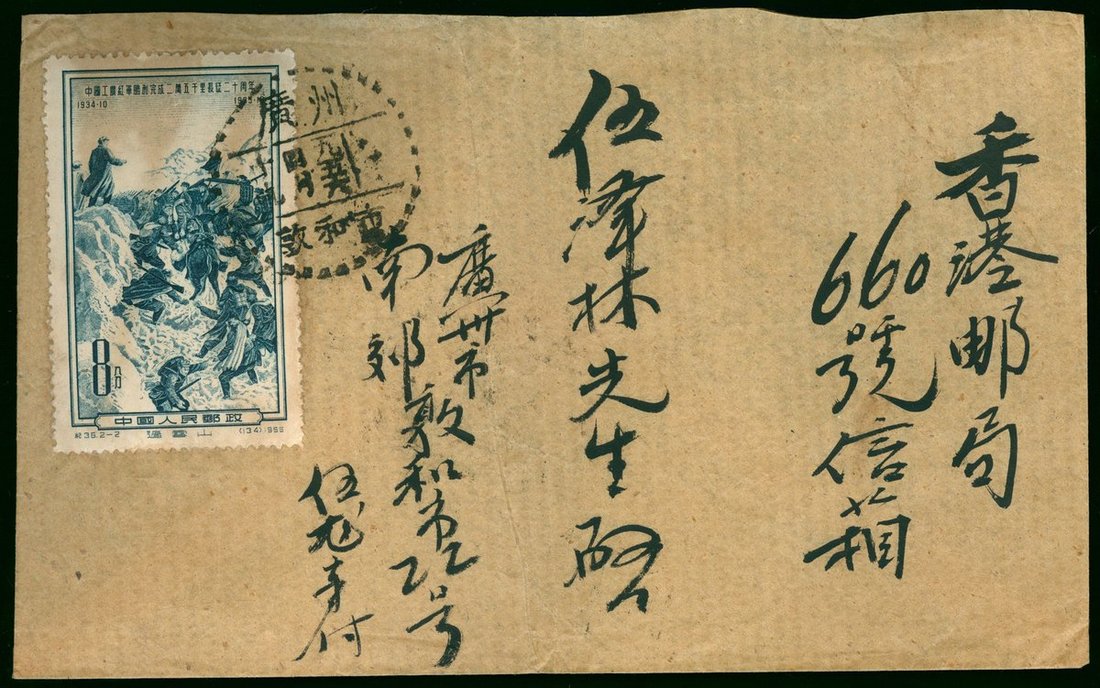 香港邮局
660號信箱
伍澤林先生啟
廣州市
南郊敦和市 号
伍 付
中國工農紅軍勝利完成二萬五千里長征二十周年
1934-10
8分
中國人民郵政
紀36.2-2 過雪山 (134) 1955
廣州
敦和市